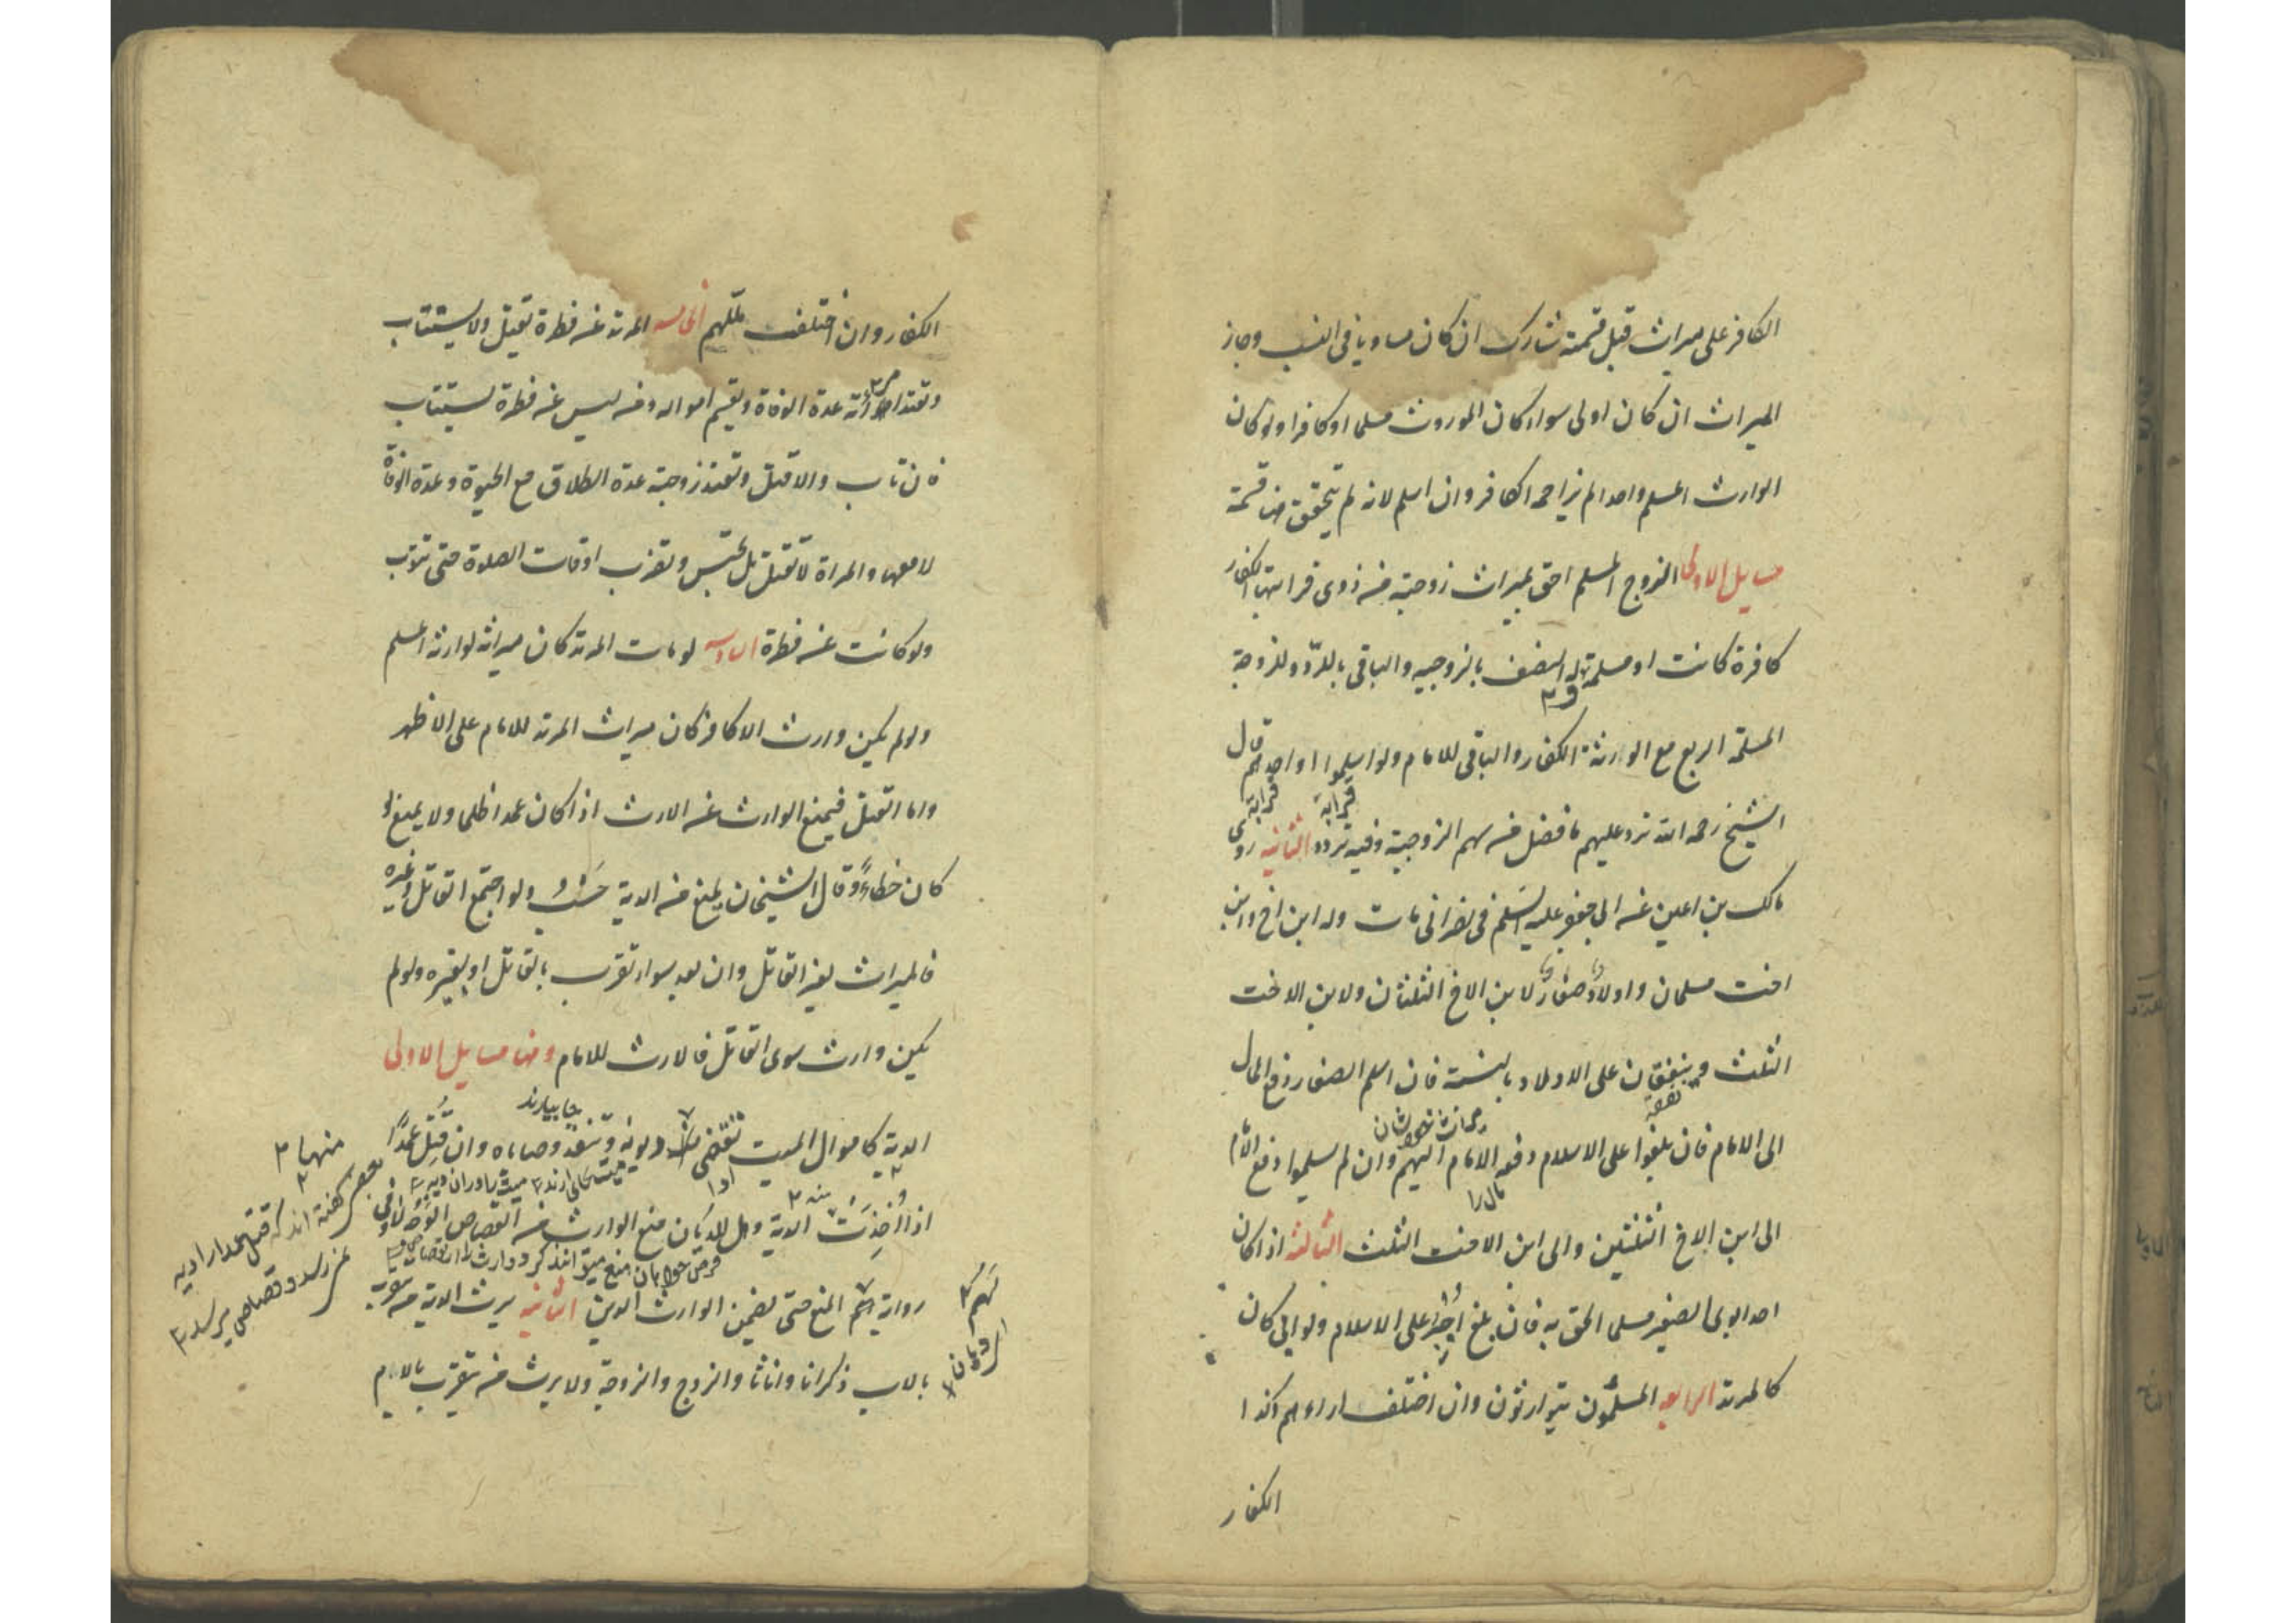 الكافر على ميراث قبل قسمته شارك ان كان مساويا فى النسب وحاز
الميراث ان كان اولى سواء كان الموروث مسلما او كافرا ولو كان
الوارث المسلم واحدا لم يزاحمه الكافر وان اسلم لانه لم يتحقق هنا قسمة
مسايل الاولى الزوج المسلم احق بميراث زوجته من ذوى قرابتها الكفار
كافرة كانت او مسلمة له النصف بالزوجيه والباقى بالردّ وللزوجة
المسلمة الربع مع الورثة الكفار والباقى للامام ولو اسلموا او احدهم قال
قرابة قرابة
الشيخ رحمه الله يرد عليهم ما فضل من سهم الزوجية وفيه تردد الثانيه روى
مالك بن اعين عن ابى جعفر عليه السلم فى نصرانى مات وله ابن اخ وابن
اخت مسلمان واولاد صغار لابن الاخ الثلثان ولابن الاخت
الثلث وينفقان على الاولاد بالنسبة فان اسلم الصغار دفع المال
نفقه
الى الامام فان بلغوا على الاسلام دفعه الامام اليهم وان لم يسلموا دفع الامام
مال را
الى ابن الاخ الثلثين والى ابن الاخت الثلث الثالثه اذا كان
احد ابوى الصغير مسلما الحق به فان بلغ اجبر على الاسلام ولو ابى كان
كالمرتد الرابعه المسلمون يتوارثون وان اختلف اراءهم وكذا
الكفار
الكفار وان اختلف مللهم الخامسه المرتد عن فطرة يقتل ولا يستتاب
وتعتد امرأته عدة الوفاة ويقسم امواله ومن ليس عن فطرة يستتاب
فان تاب والا قتل وتعتد زوجته عدة الطلاق مع الحيوة وعدة الوفاة
لا معها والمراة لا تقتل بل تحبس وتضرب اوقات الصلوة حتى تتوب
ولو كانت عن فطرة السادسه لو مات المرتد كان ميراثه لوارثه المسلم
ولو لم يكن وارث الا كافر كان ميراث المرتد للامام على الاظهر
واما القتل فيمنع الوارث من الارث اذا كان عمدا ظلما ولا يمنع لو
كان خطاءً وقال الشيخان يمنع من الدية حسب ولو اجتمع القاتل وغيره
فالميراث لغير القاتل وان بعد سواء تقرب بالقاتل او بغيره ولو لم
يكن وارث سوى القاتل فالارث للامام وهنا مسايل الاولى
الدية كاموال الميت تقضى منها ديونه وتنفذ وصاياه وان قتل عمدًا
منها
اذا اُخِذَت الدية وهل للديان منع الوارث من القصاص الوجه لا وفى
رواية لهم المنع حتى يضمن الوارث الدين الثانيه يرث الدية من يتقرب
بالاب ذكرانا واناثا والزوج والزوجة ولا يرث من يتقرب بالام